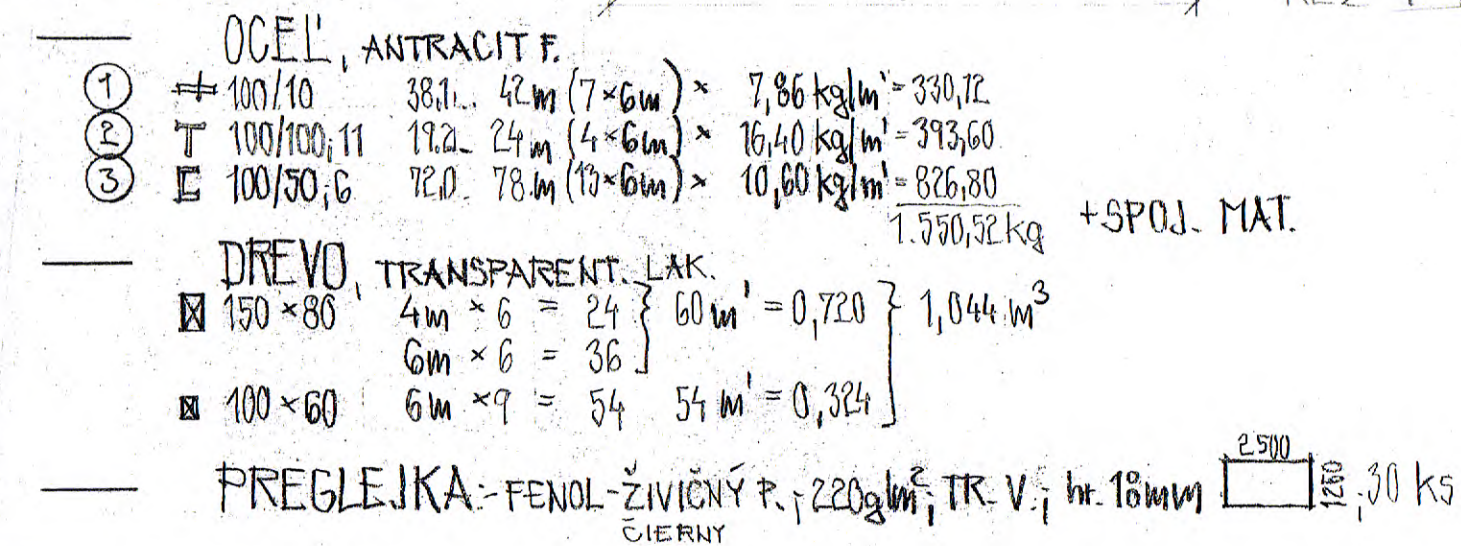 REZ
OCEĽ, ANTRACIT F.
1 100/10 38,1.. 42m (7×6m) × 7,86 kg/m' = 330,12
2 T 100/100;11 19.2.. 24m (4×6m) × 16,40 kg/m' = 393,60
3 100/50;6 72,0.. 78m (13×6m) × 10,60 kg/m' = 826,80
1.550,52 kg + SPOJ. MAT.
DREVO, TRANSPARENT. LAK.
150×80 4m × 6 = 24 } 60 m' = 0,720 } 1,044 m³
6m × 6 = 36
100×60 6m × 9 = 54 54 m' = 0,324
2500
PREGLEJKA:- FENOL-ŽIVIČNÝ P.; 220g/m²; TR. V.; hr. 18mm 1250, 30 ks
ČIERNY